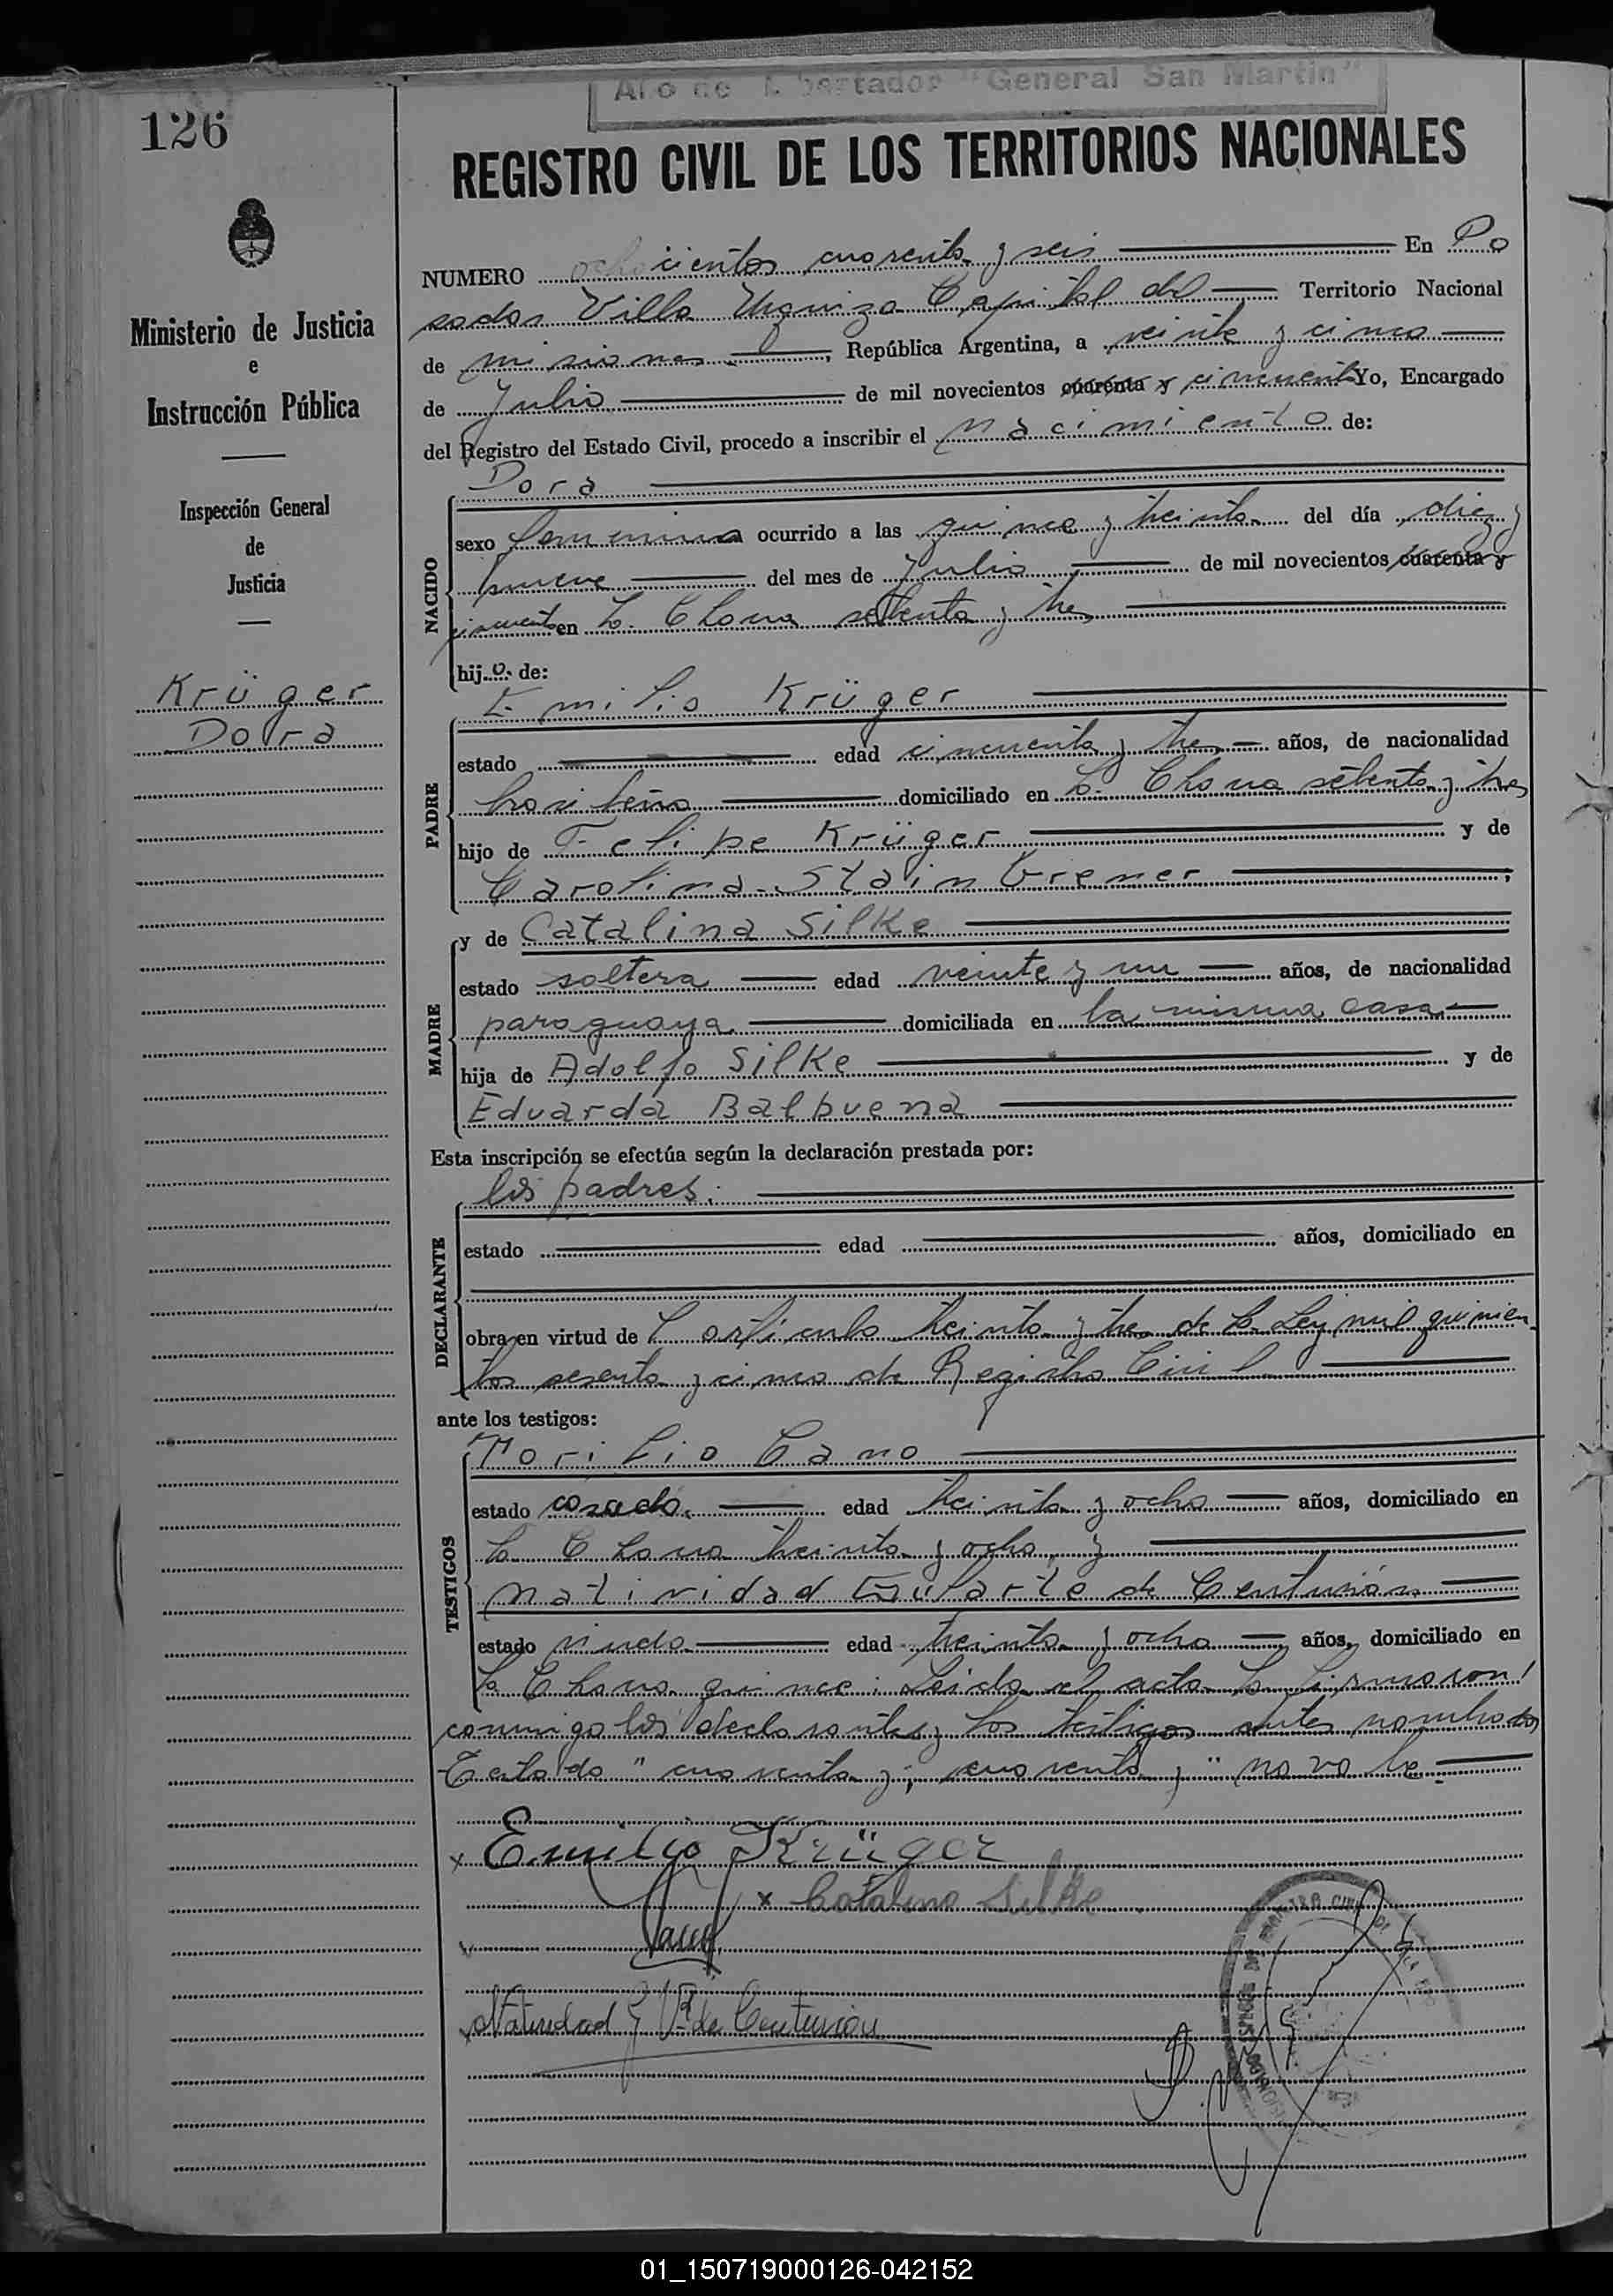 126
"General San Martin"
REGISTRO CIVIL DE LOS TERRITORIOS NACIONALES
Ministerio de Justicia
e
Instrucción Pública
Inspección General
de
Justicia
Krüger
Dora
NUMERO ochocientos cuarenta y seis En Po
sadas Villa Urquiza Capital del Territorio Nacional
de misiones, República Argentina, a veinte y cinco
de Julio de mil novecientos cuarenta y cincuenta Yo, Encargado
del Registro del Estado Civil, procedo a inscribir el nacimiento de:
NACIDO
Dora
sexo femenino ocurrido a las quince y treinta del día diez y
nueve del mes de Julio de mil novecientos cuarenta y
cincuenta en La Chacra setenta y tres
hijo de:
PADRE
Emilio Krüger
estado edad cincuenta y tres años, de nacionalidad
brasileño domiciliado en La Chacra setenta y tres
hijo de Felipe Krüger y de
Carolina Stain
MADRE
y de Catalina Silke
estado soltera edad veinte y un años, de nacionalidad
paraguaya domiciliada en la misma casa
hija de Adolfo Silke y de
Eduarda Balbuena
Esta inscripción se efectúa según la declaración prestada por:
DECLARANTE
los padres.
estado edad años, domiciliado en
obra en virtud de l artículo treinta y tres de la Ley mil quinien
tos sesenta y cinco de Registro Civil
ante los testigos:
TESTIGOS
Cano
estado casado. edad treinta y ocho años, domiciliado en
la Chacra treinta y ocho y
Natividad de Centurión
estado viuda edad treinta y ocho años, domiciliado en
la Chacra quince. Leída el acta la firmaron
conmigo los declarantes y los testigos antes nombrados
Testado "cuarenta y; cuarenta y" no vale.
x Emilio Krüger
x Catalina Silke
Natividad de Centurión
01_150719000126-042152